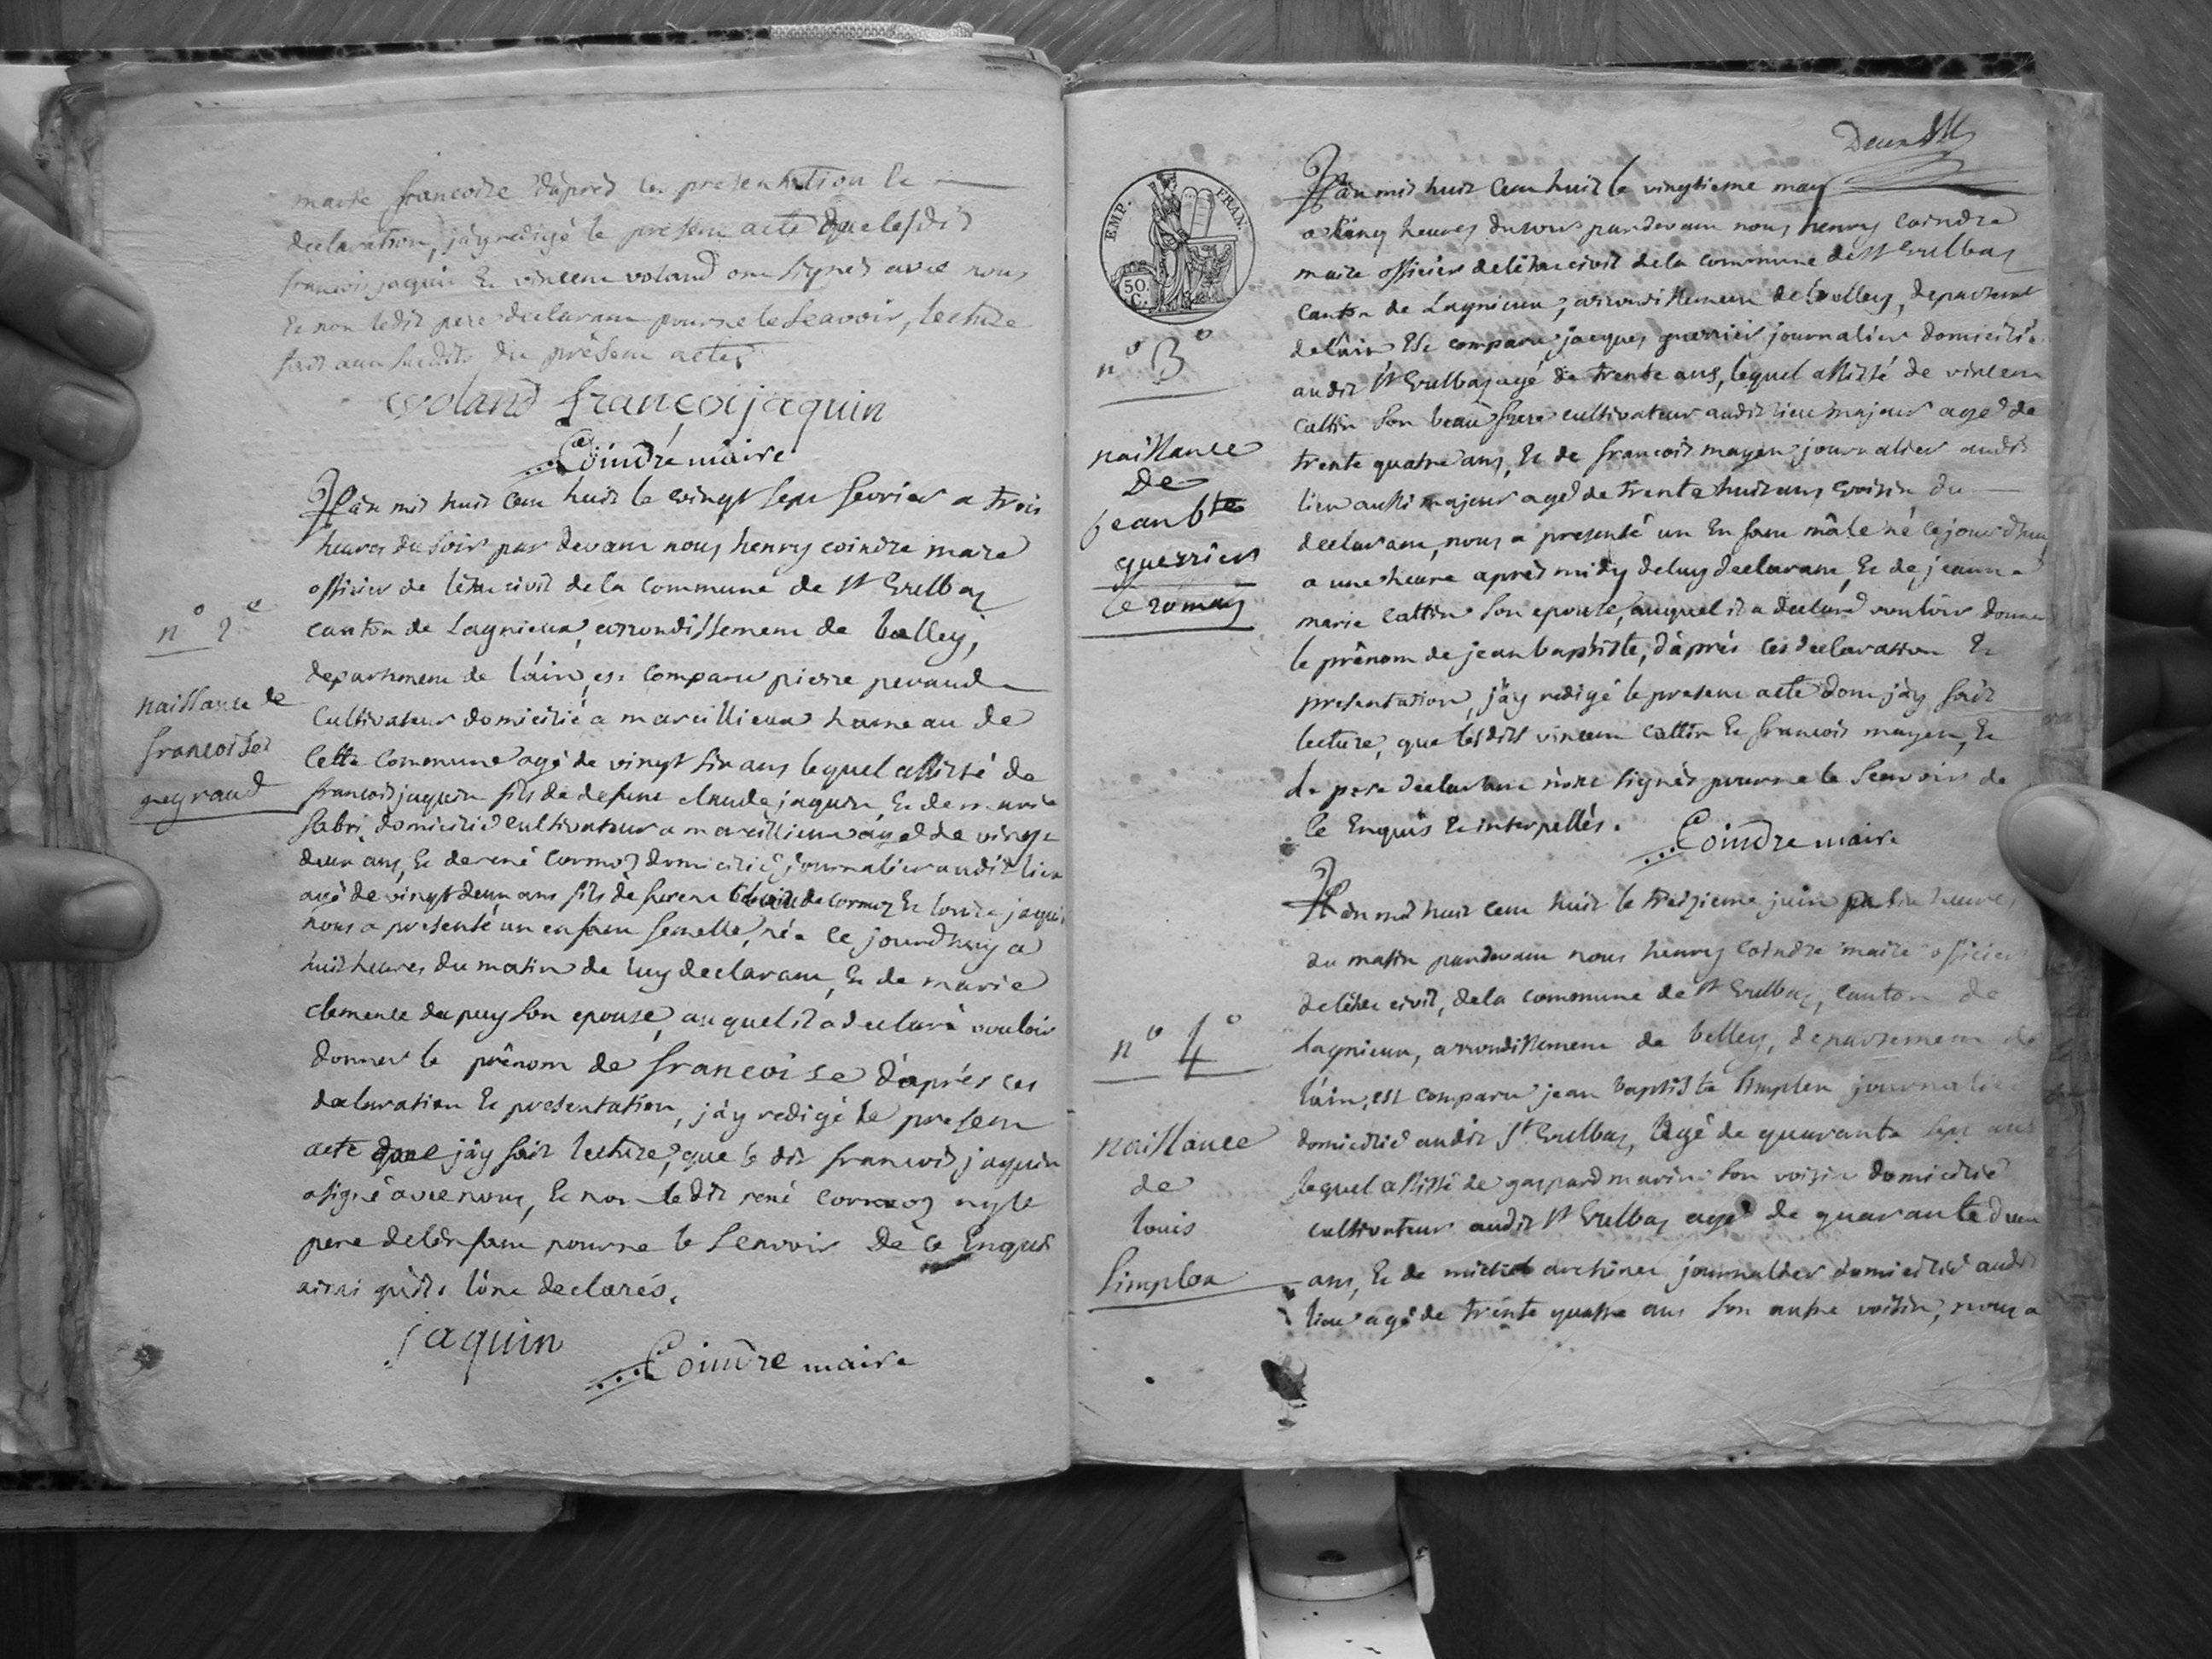 marie francoise d'après les presentation Et
declaration, j'ay redigé le present acte que lesdit
francois jaquin Et vincent voland ont signés avec nous
Et non ledit pere declarant pour ne le scavoir, lecture
fait aux susdits du présent acte,
voland françoi jaquin
Coindre maire
n° 2e
naissance de
francoise
L'an mil huit cent huit le vingt sept fevrier a trois
heures du soir par devant nous henry coindre maire
officier de l'état civil de la commune de st Vulbaz
canton de Lagnieux, arrondissement de belley,
departement de l'ain, est comparu pierre
cultivateur domicilié a marcillieux hameau de
cette commune agé de vingt six ans lequel assisté de
francois jaquin fils de defunt claude jaquin Et de marie
fabri domicilié cultivateur a marcillieux agé de vingt
deux ans, Et de rené cormoz domicilié journalier audit lieu
agé de vingt deux ans fils de de cormoz Et louise jaquin
nous a presenté un enfant femelle, née ce jourd'huy a
huit heures du matin de luy declarant, Et de marie
clemence dupuy son epouse, auquel il a declaré vouloir
donner le prénom de francoise d'aprés ces
declaration Et presentation, j'ay redigé le present
acte dont j'ay fait lecture, que le dit francois jaquin
a signé avec nous, Et non ledit rené cormoz ny le
pere de l'enfant pour ne le scavoir de ce Enquis
ainsi qu'ils l'ont declarés.
jaquin
Coindre maire
Deux
EMP. FRAN.
50. C.
n° 3°
naissance
de
jean bte
guerrier
le 20 may
L'an mil huit cent huit le vingtieme may
a cinq heures du soir pardevant nous henry coindre
maire officier de l'état civil de la commune de st Vulbaz
canton de Lagnieux, arrondissement de belley, departement
de l'ain Est comparu jacques guerrier journalier domicilié
audit st Vulbaz agé de trente ans, lequel assisté de vincent
cattin son beau frere cultivateur audit lieu majeur agé de
trente quatre ans, Et de francois mayen journalier audit
lieu aussi majeur agé de trente huit ans voisin du
declarant, nous a presenté un Enfant mâle né cejourd'huy
a une heure aprés midy de luy declarant, Et de jeanne
marie cattin son epouse, auquel il a declaré vouloir donner
le prénom de jean baptiste, d'aprés ces declaration Et
presentation, j'ay redigé le present acte dont j'ay fait
lecture, que lesdits vincent cattin Et francois mayen, Et
le pere declarant n'ont signés pour ne le scavoir de
ce Enquis Et interpellés.
Coindre maire
n° 4°
naissance
de
louis
simplex
L'an mil huit cent huit le treizieme juin heures
du matin pardevant nous henry coindre maire officier
de l'état civil, de la commune de st Vulbaz, canton de
lagnieux, arrondissement de belley, departement de
l'ain, est comparu jean baptiste simplex journalier
domicilié audit st Vulbaz, agé de quarante sept ans
lequel assisté de gaspard marin son voisin domicilié
cultivateur audit st Vulbaz agé de quarante deux
ans, Et de michel journalier domicilié audit
lieu agé de trente quatre ans son autre voisin, nous a